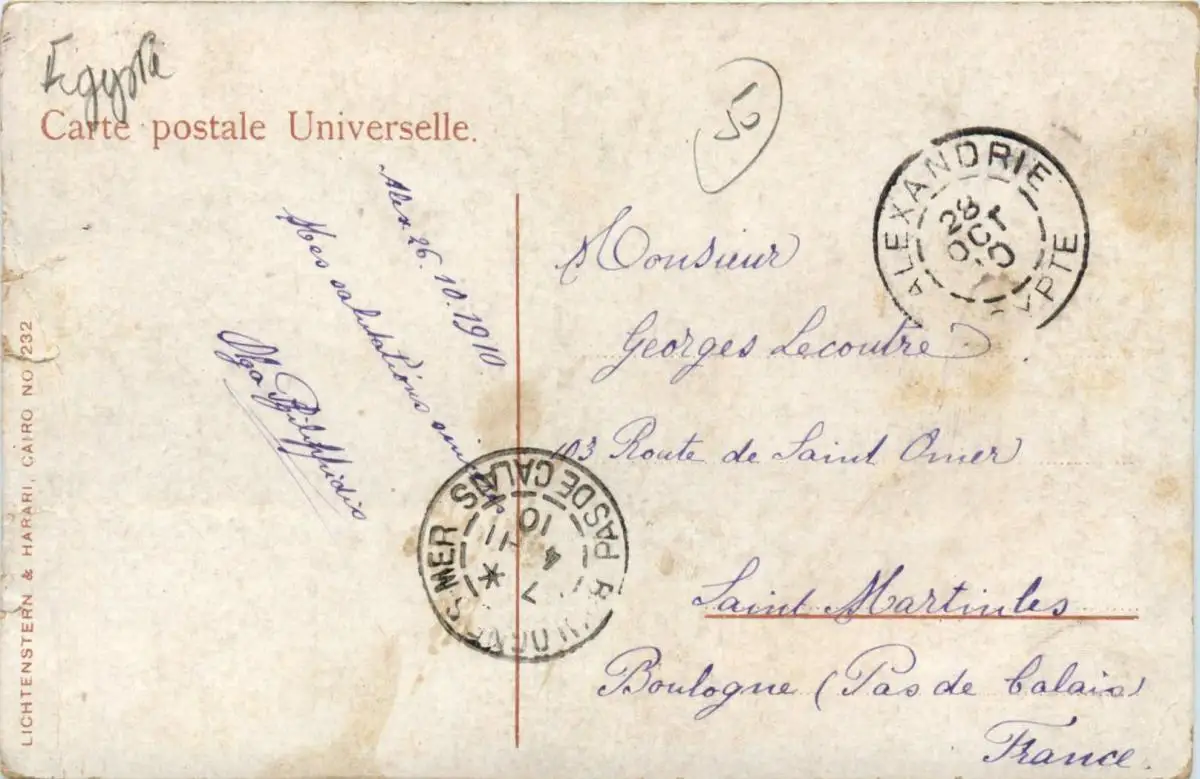 Egypte
Carte postale Universelle.
5
Alex 26.10.1910
Mes salutations
Olga Philippidis
Monsieur
Georges Lecoutre
103 Route de Saint Omer
Saint Martin les
Boulogne (Pas de Calais)
France.
ALEXANDRIE
28
OCT
10
YPTE
BOULOGNE S MER
PAS DE CALAIS
7 *
4 -11
10
LICHTENSTERN & HARARI, CAIRO NO 232